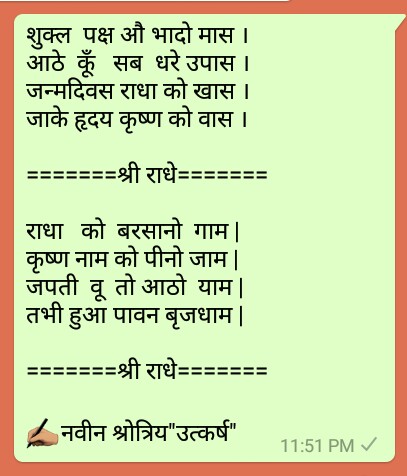 शुक्ल पक्ष औ भादो मास ।
आठे कूँ सब धरे उपास ।
जन्मदिवस राधा को खास ।
जाके हृदय कृष्ण को वास ।
=======श्री राधे=======
राधा को बरसानो गाम|
कृष्ण नाम को पीनो जाम|
जपती वू तो आठो याम|
तभी हुआ पावन बृजधाम|
=======श्री राधे=======
✍🏽नवीन श्रोत्रिय"उत्कर्ष"
11:51 PM ✓